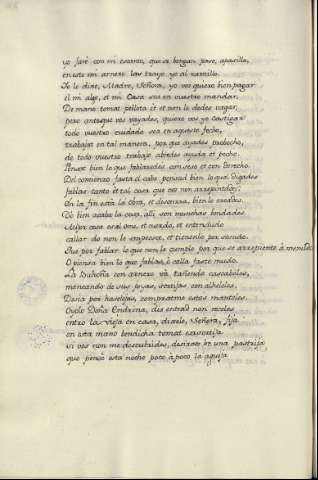 yo faré con mi escanto, que se bengan paso, apasillo,
en este mi arnero las trayo yo al sarcillo.
Yo le dixe, Madre, Señora, yo vos quiero bien pagar
el mi algo, et mi Casa sea en vuestro mandar.
De mano tomat pellote it et non le dedes vagar,
pero antes que vos vayades, quiero vos yo castigar
todo vuestro cuidado sea en aqueste fecho,
trabajat en tal manera, por que ayades probecho,
de todo vuestro trabajo abredes ayuda et pecho.
Penset bien lo que fablaredes con seso et con derecho.
Del comienzo fasta el cabo, pensad bien lo que digades
fablat tanto et tal cosa que vos non arrepintades,
en la fin está la obra, et desonrra, bien lo creades.
Dó bien acaba la cosa, alli son muchas bondades.
Mejor cosa es al ome, et cuerdo, et entendudo
callar do non le empresce, et tienenlo por sesudo
Que por fablar lo que non le cumple por que se arrepiente á menudo
O piensa bien lo que fablas, ó calla faste mudo.
La Buhona con arnero vá tañendo cascabeles,
meneando de sus joyas, sortijas con alheleles.
Desia por haselejas, compratme estos manteles.
Oyolo Doña Endrina, dis entrad non receles
entro la vieja en casa, dixole, Señora, fija
en esta mano bendicha tomat sausortija
si vos non me descubrides, desirvos he una pastrija
que pensé esta noche poco á poco la aguja